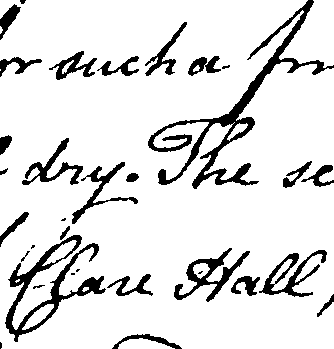 or such a
dry. The
Clare Hall,